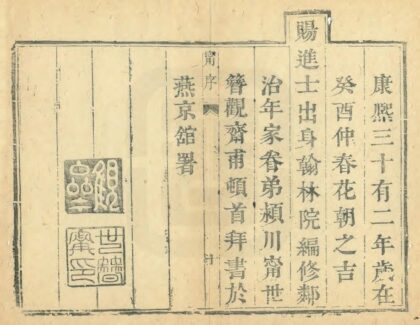 康熙三十有二年歲在
癸酉仲春花朝之吉
賜進士出身翰林院編修鄰
治年家眷弟潁川甯世
簪觀齋甫頓首拜書於
甯序
燕京舘署